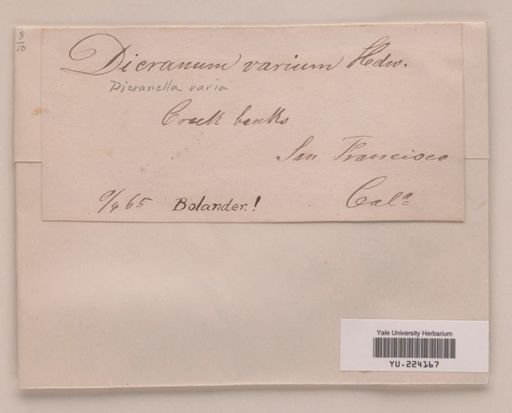 8/10
Dicranum varium Hdw.
Dicranella varia
Creek banks
San Francisco
Cala
9/4 65 Bolander.!
Yale University Herbarium
YU.224167